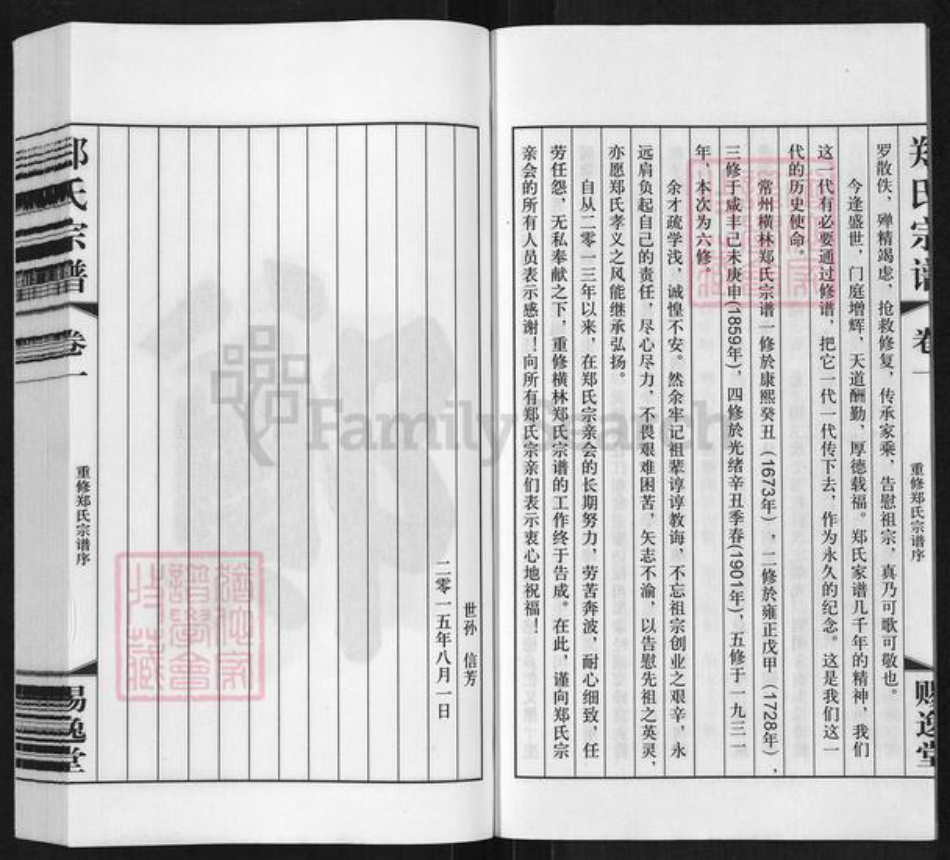 罗散佚，殚精竭虑，抢救修复，传承家乘，告慰祖宗，真乃可歌可敬也。
今逢盛世，门庭增辉，天道酬勤，厚德载福。郑氏家谱几千年的精神，我们
这一代有必要通过修谱，把它一代一代传下去，作为永久的纪念。这是我们这一
代的历史使命。
常州横林郑氏宗谱一修於康熙癸丑（1673年），二修於雍正戊甲（1728年），
三修于咸丰己未庚申(1859年)，四修於光绪辛丑季春(1901年)，五修于一九三一
年，本次为六修。
余才疏学浅，诚惶不安。然余牢记祖辈谆谆教诲，不忘祖宗创业之艰辛，永
远肩负起自己的责任，尽心尽力，不畏艰难困苦，矢志不渝，以告慰先祖之英灵，
亦愿郑氏孝义之风能继承弘扬。
自从二零一三年以来，在郑氏宗亲会的长期努力，劳苦奔波，耐心细致，任
劳任怨，无私奉献之下，重修横林郑氏宗谱的工作终于告成。在此，谨向郑氏宗
亲会的所有人员表示感谢！向所有郑氏宗亲们表示衷心地祝福！
世孙　信芳
二零一五年八月一日
郑氏宗谱
卷一
重修郑氏宗谱序
赐逸堂
郑氏宗谱
卷一
重修郑氏宗谱序
赐逸堂
FamilySearch